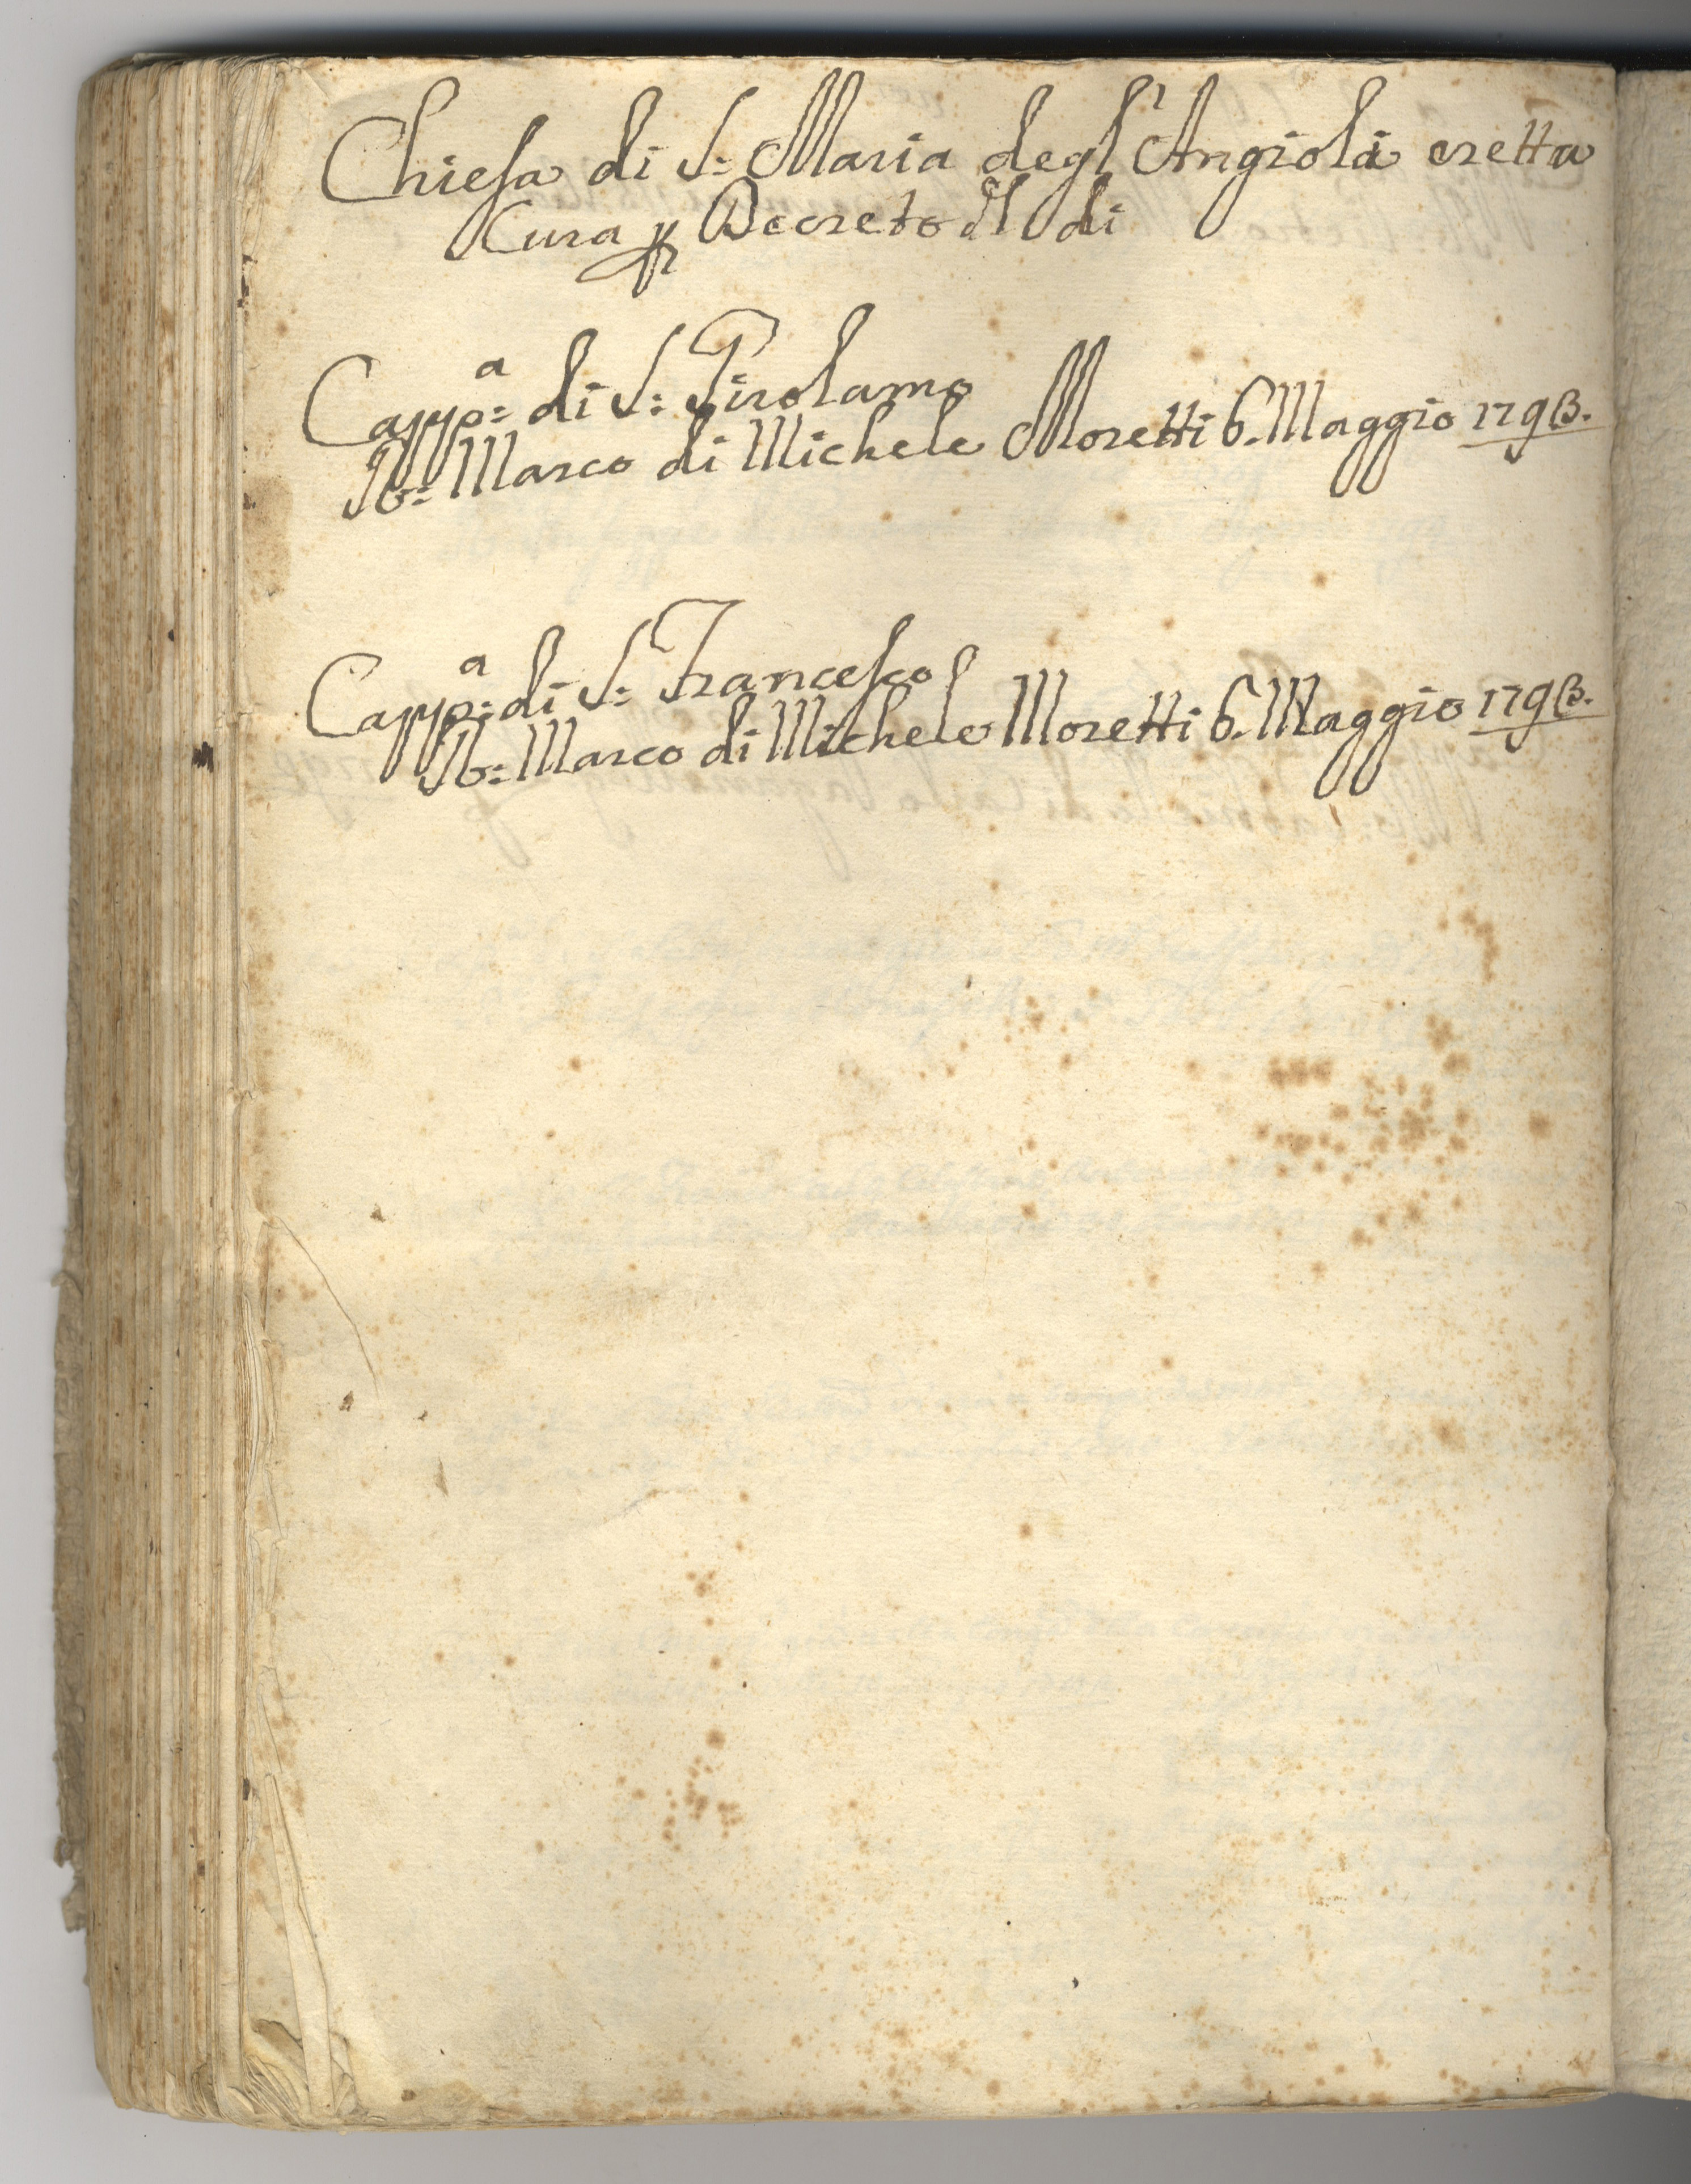 Chiesa di S: Maria degl'Angioli eretta
Cura p Decreto dl di
Capp:ª di S: Girolamo
Marco di Michele Moretti 6. Maggio 1793.
Capp:ª di S: Francesco
Marco di Michele Moretti 6. Maggio 1793.